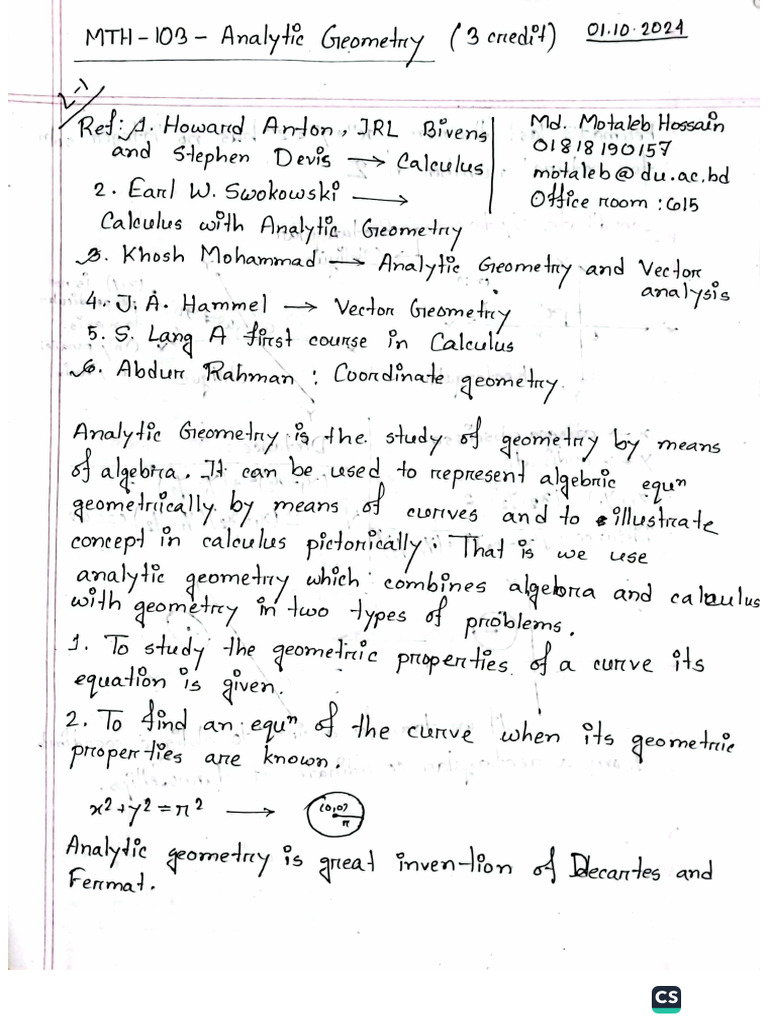 MTH-103 - Analytic Geometry (3 credit) 01.10.2024
L-1
Ref: 1. Howard Anton, IRL Bivens
and Stephen Devis → Calculus
2. Earl W. Swokowski →
Calculus with Analytic Geometry
3. Khosh Mohammad → Analytic Geometry and Vector
analysis
4. J. A. Hammel → Vector Geometry
5. S. Lang A first course in Calculus
6. Abdur Rahman : Coordinate geometry.
Md. Motaleb Hossain
01818190157
motaleb@du.ac.bd
Office room : 615
Analytic Geometry is the study of geometry by means
of algebra. It can be used to represent algebric equⁿ
geometrically by means of curves and to illustrate
concept in calculus pictorically. That is we use
analytic geometry which combines algebra and calculus
with geometry in two types of problems.
1. To study the geometric properties of a curve its
equation is given.
2. To find an equⁿ of the curve when its geometric
properties are known.
x² + y² = r² → (0,0) r
Analytic geometry is great invention of Decartes and
Fermat.
CS